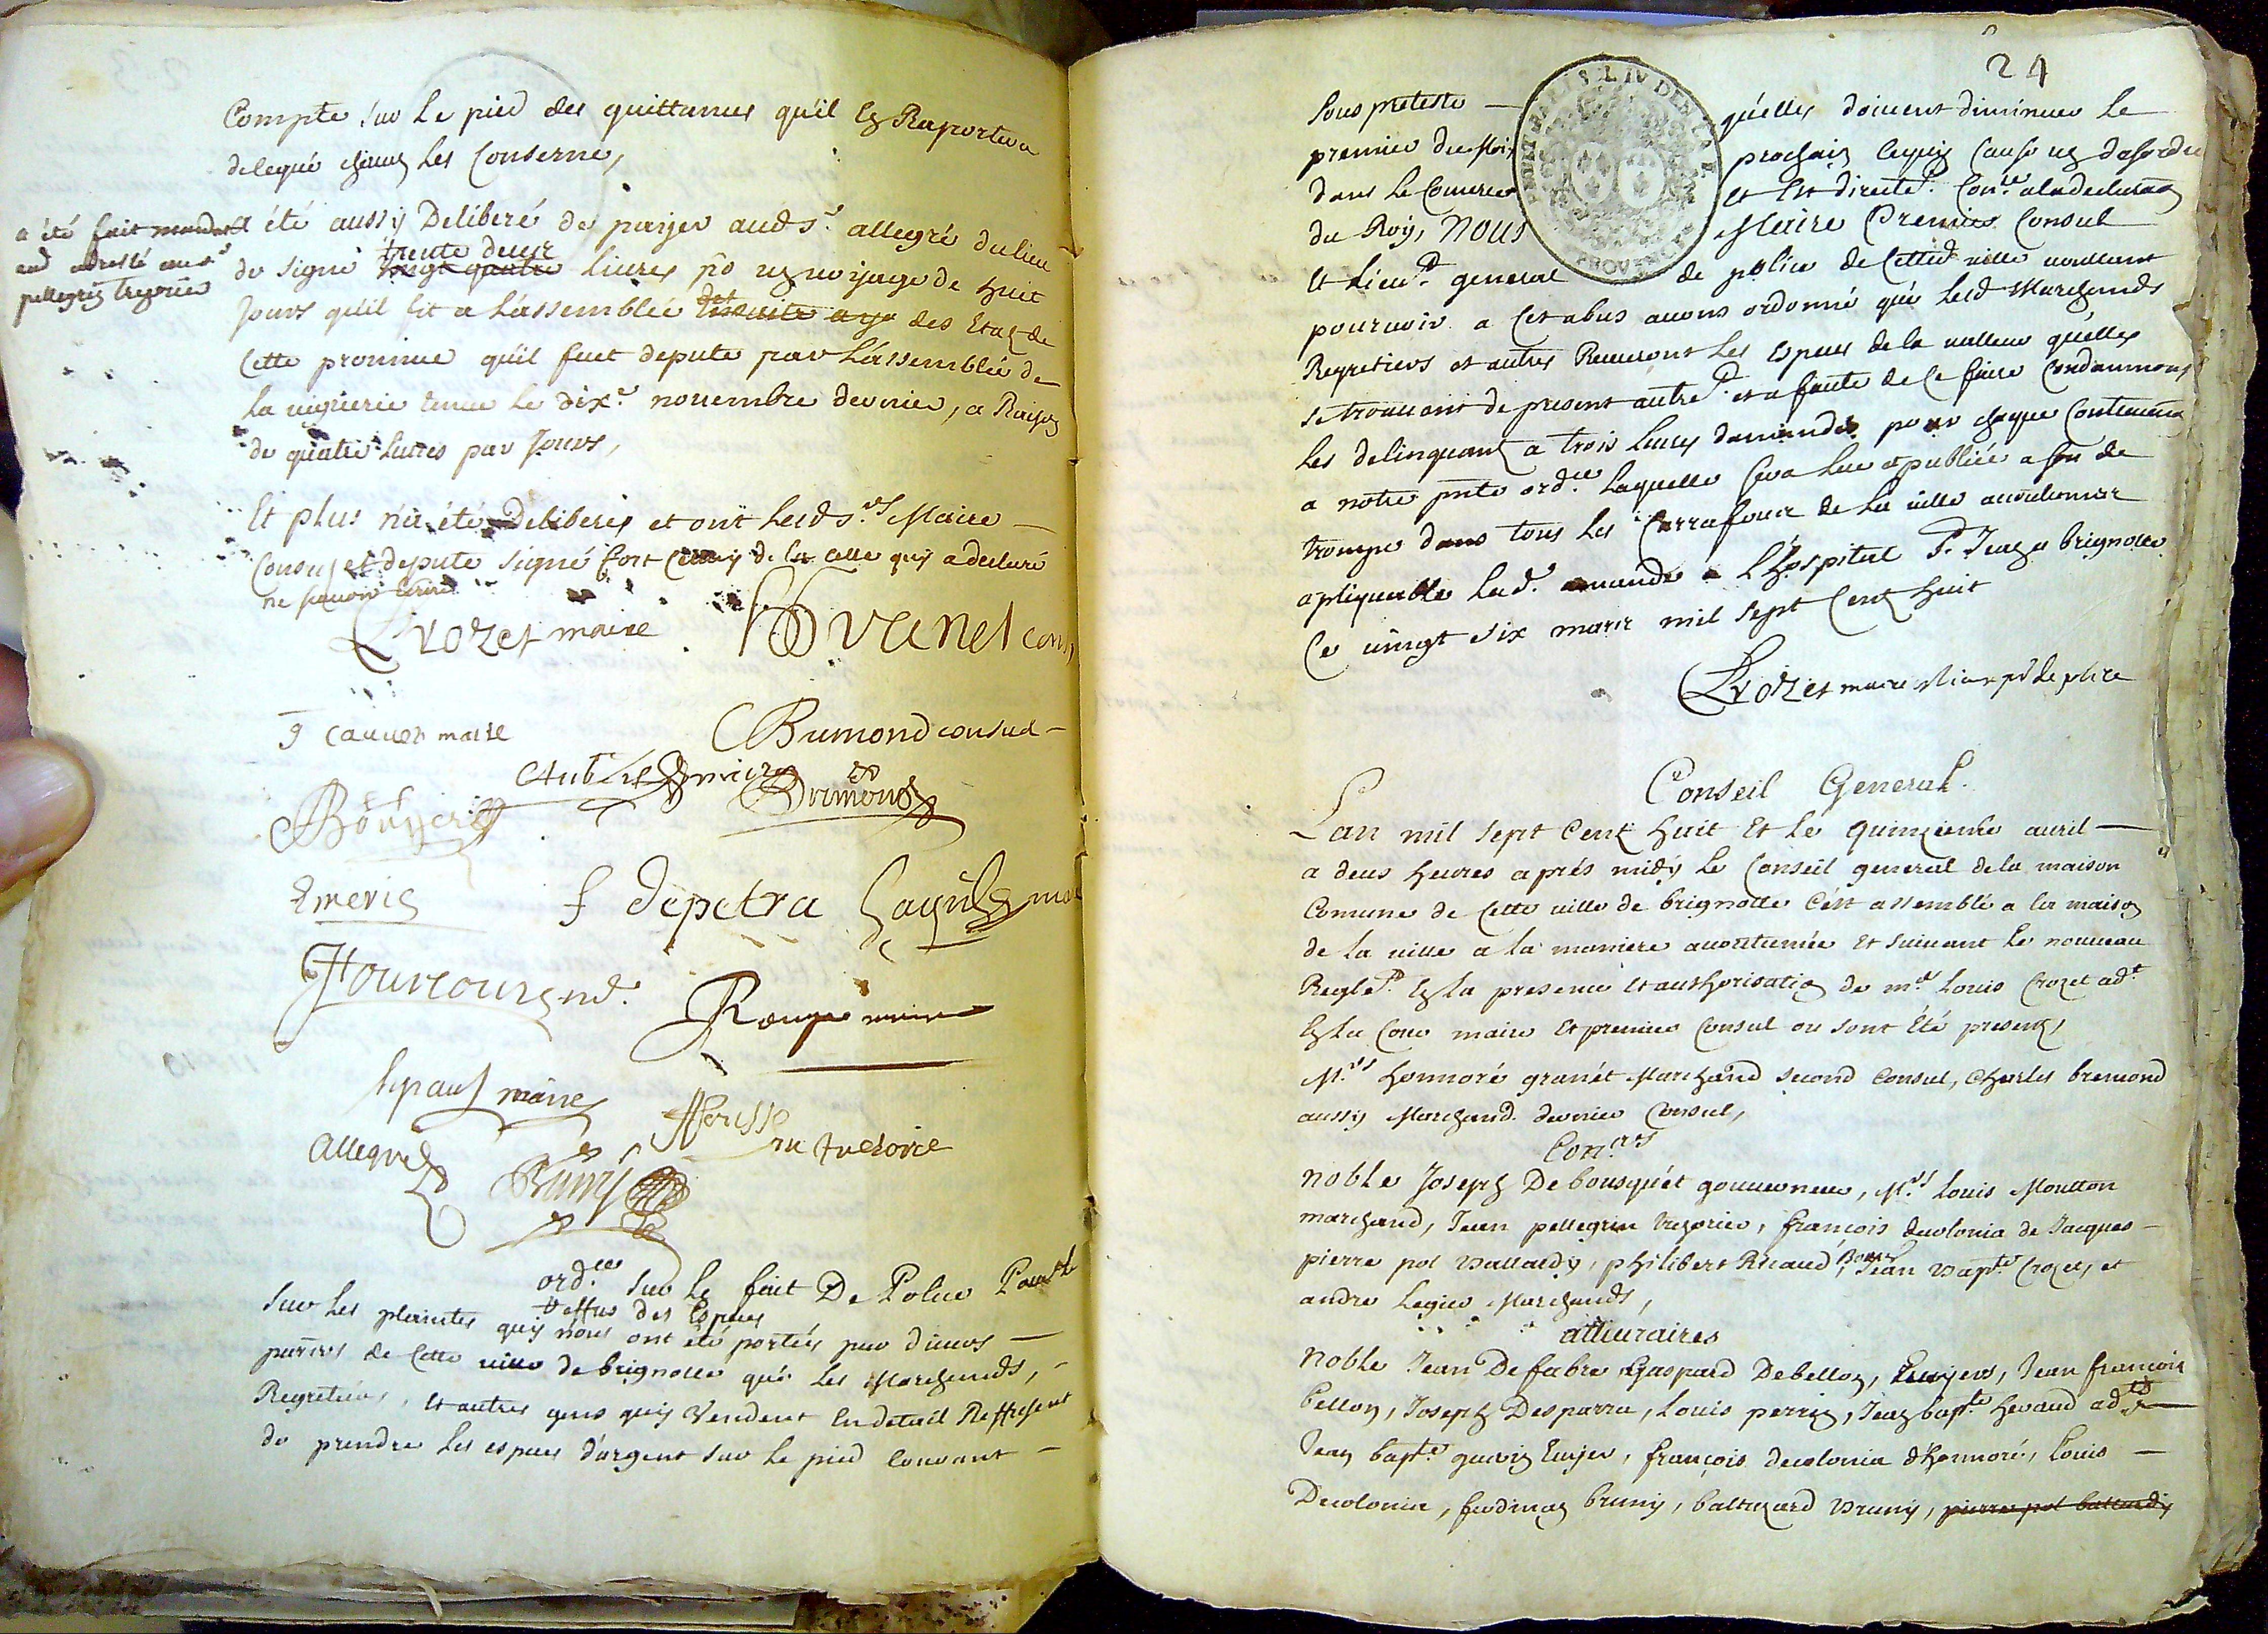 Compte sur le pied des quittances qu'il en Raportera
delegué chaun les Conserne,
a été fait mandat
and adressé aud s.r
pellegrin tresorier
Et été aussy Deliberé de payer aud s.r allegré du lieu
de signe trente deux vingt quatre livres po un voyage de huit
Jours qu'il fit a l'assemblée des Etaz de
Cette province qu'il fuet depute par l'assemblée de
la viguerie tenue le dix.e novembre dernier, a Raison
de quatre livres par Jours,
Et plus n'a été Deliberés et ont lesd s.rs Maire
Consuls et depute signé fort Celluy de la celle quy a declaré
ne scavoir Ecrire
Crozet maire Granet cons
g cauuet maire Bremond consul
Aubert Bremond
Bouyer
Emeric f depetra maire
nd. Rouge maire
maire
allegre Bruny tresorie
ord.ce sur le fait De Police Pour le
reffus des Especes
Sur les plaintes quy nous ont été portées par divers
partis de Cette ville de brignolle que les Marchands,
Regretiers, et autres gens quy Vendent En detail Reffusent
de prendre les especes d'argent sur le pied Courant
24
Sous preteste qu'elles doivent diminuer le
premier du Mois prochain cequy cause un desordre
dans le Commerce et Est directe.t Con.re a la declara.on
du Roy, NOUS Maire Premier Consul
et Lieu.t general de police de Cetted ville voullant
pourvoir a Cet abus avons ordonné que lesd Marchands
Regretiers et autres Recevront les Especes de la valleur qu'elles
se trouvont de present autre.t et a faute de Ce faire Condamnons
les delinquans a trois livres damandes pour chaque Contravan.on
a notre pnte ord.ce laquelle sera lue et publiée a son de
trompe dans tous les Carrafour de la ville accoutumez
apliquable lad. amande a l'hospital S. Jean a brignolle
Ce vingt six mars mil sept Cent huit
Crozet maire
Conseil General.
Lan mil sept Cent huit Et le quinzieme avril
a deux heures aprés midy le Conseil general de la maison
Comune de Cette ville de brignolle C'est assemblé a la maison
de la ville a la maniere accoutumée Et suivant le nouveau
Regle.t En la presence Et authorisation de m.e Louis Crozet ad.t
En la Cour maire Et premier Consul ou sont Eté presens,
M.rs honnoré granét Marchand second Consul, Charles bremond
aussy Marchand dernier Consul,
Con.ers
noble Joseph De bousquét gouverneur, M.rs Louis Moutton
marchand, Jean pellegrin tresorier, francois decolonia de Jacques
pierre pol Vallardy, philibert Ricaud, Jean Bapt.e Crozet, et
andre Legier Marchands,
attuuraires
noble Jean De fabre Gaspard De bellon, Ecuyers, Jean francois
bellon, Joseph Desparra, Louis perrin, Jean bapt.e heraud ad.ts
Jean bapt.e guerin Ecuyer, françois decolonia d'honnoré, Louis
Decolonia, ferdinan bruny, baltazard Bruny, pierre pol ballardy